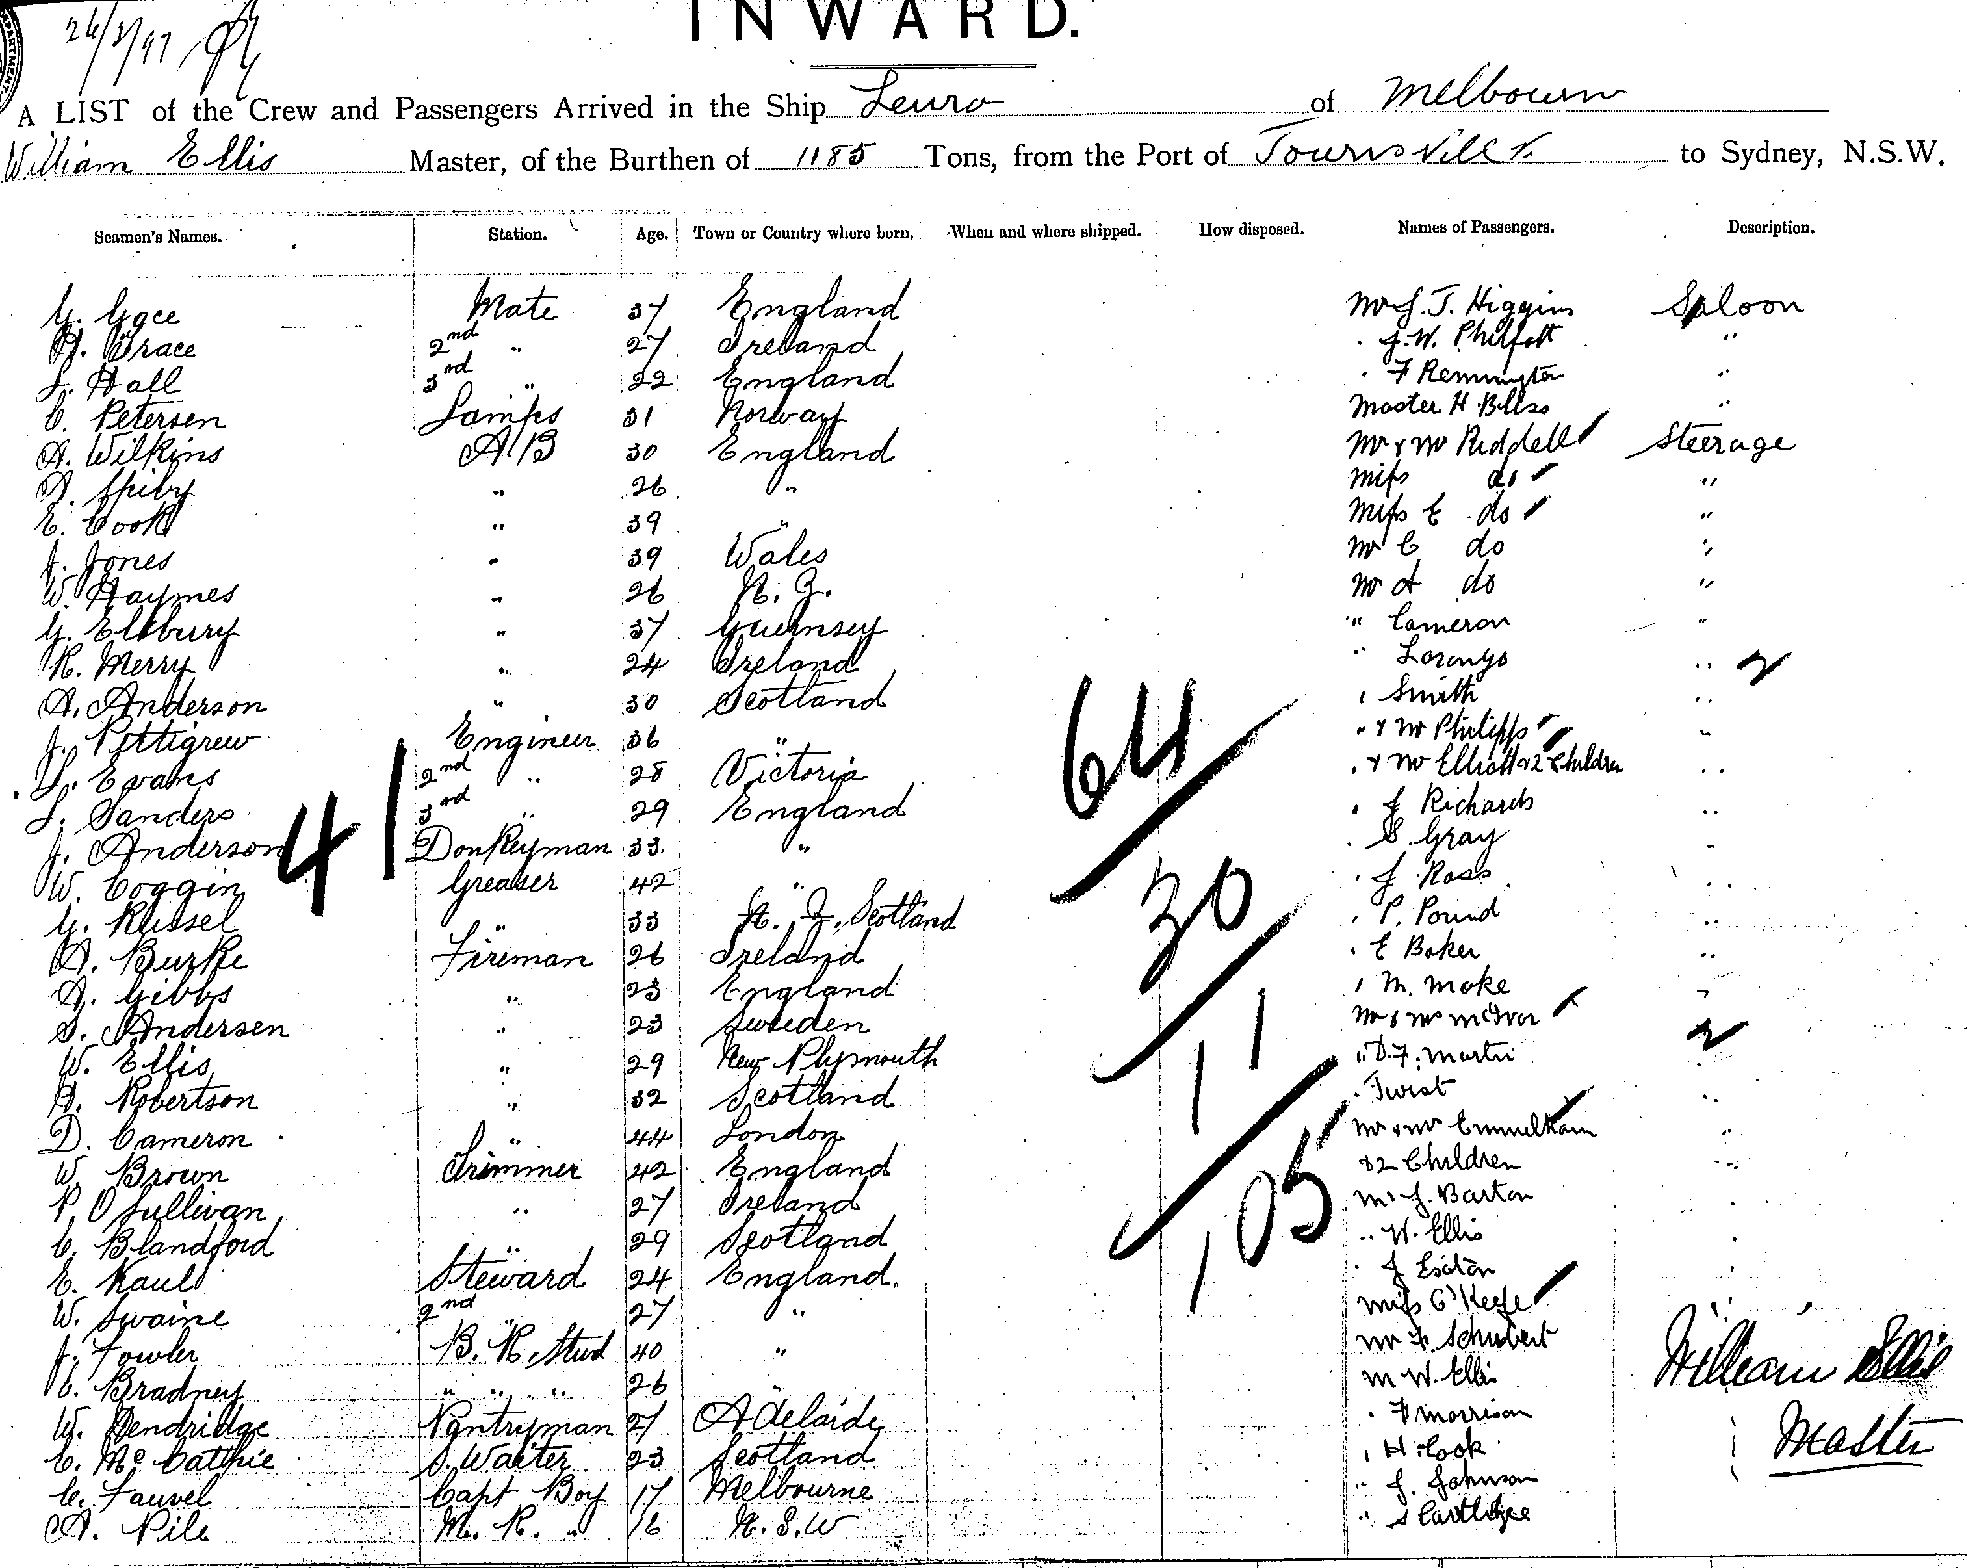 24/3/97
INWARD.
A LIST of the Crew and Passengers Arrived in the Ship Leura of Melbourn
William Ellis Master, of the Burthen of 1185 Tons, from the Port of Townsville to Sydney, N.S.W.
Seamen's Names. Station. Age. Town or Country where born. When and where shipped. How disposed. Names of Passengers. Description.
G. Gace Mate 37 England Mr J. T. Higgins Saloon
H. Grace 2nd " 27 Ireland " J. W. Philpott "
L. Hall 3rd " 22 England " F Remmington "
C. Petersen Lamps 31 Norway Master H Bliss "
A. Wilkins A/B 30 England Mr & Mrs Riddell Steerage
A. Spiby " 26 " Miss do "
E. Cook " 39 " Miss E do "
J. Jones " 39 Wales Mr C do "
W. Haymes " 26 N. Z. Mr A do "
G. Ellbury " 37 Guernsey " Cameron "
R. Merry " 24 Ireland " Lorenzo " 2
A. Anderson " 30 Scotland " Smith "
J. Pettigrew Engineer 36 " " & Mr Philipps "
Evans 2nd " 28 Victoria " & Mr Elliott & 2 Children "
L. Sanders 3rd " 29 England " J Richards "
J. Anderson Donkeyman 33 " " C Gray "
W. Coggin Greaser 42 " " J Ross "
G. Russel " 33 N. Z. Scotland " P. Pound "
A. Burke Fireman 26 Ireland " E Baker "
A. Gibbs " 23 England " M. Moke "
S. Andersen " 23 Sweden Mr & Mrs McIvor 2
W. Ellis " 29 New Plymouth " D. F. Martin
A. Robertson " 32 Scotland " Twist "
D. Cameron " 44 London Mr & Mr "
W. Brown Trimmer 42 England & 2 Children "
P. O'Sullivan " 27 Ireland Mr J. Barton "
C. Blandford " 29 Scotland " W. Ellis "
E. Kaul Steward 24 England. " J Eseton
W. Swaine 2nd " 27 " Miss O'Keefe
J. Fowler B. R. Stwd 40 " Mr F. Schubert
C. Bradney " " " 26 " M W. Ellis
W. Dendridge Pantryman 27 Adelaide " F Morrison
C. McCatchie S. Waiter 23 Scotland " H Cook
C. Fauvel Capt Boy 17 Melbourne " J. Johnson
A. Pile M. R. " 16 N. S. W " S Cartlidge
41
64
30
11
105
William Ellis
Master